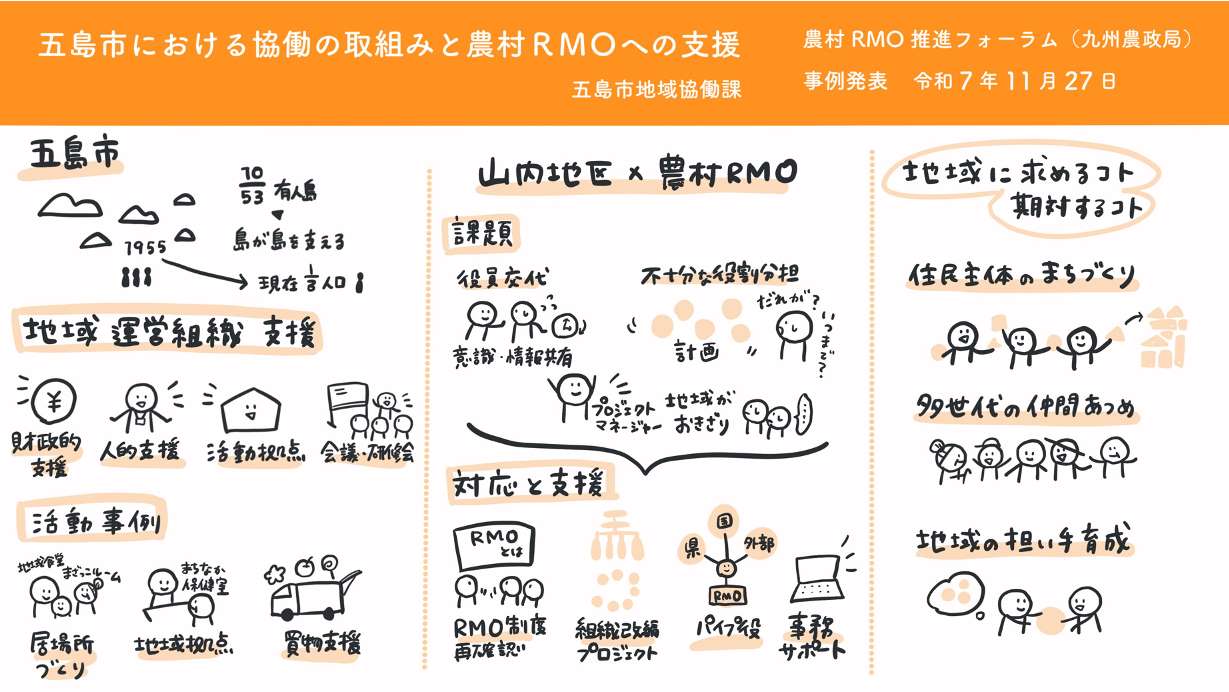 五島市における協働の取組みと農村RMOへの支援
五島市地域協働課
農村RMO推進フォーラム（九州農政局）
事例発表　令和7年11月27日
五島市
10
53
有人島
島が島を支える
1955
現在 1/3 人口
地域運営組織 支援
¥
財政的
支援
人的支援
活動拠点
会議・研修会
活動事例
地域食堂
まざっこルーム
居場所
づくり
まちなか
保健室
地域拠点
買物支援
山内地区×農村RMO
課題
役員交代
意識・情報共有
不十分な役割分担
計画
だれが？
いつまで？
プロジェクト
マネージャー
地域が
おきざり
対応と支援
RMO
とは
RMO制度
再確認
組織改編
プロジェクト
国
県
外部
RMO
パイプ役
事務
サポート
地域に求めるコト
期対するコト
住民主体のまちづくり
多世代の仲間あつめ
地域の担い手育成